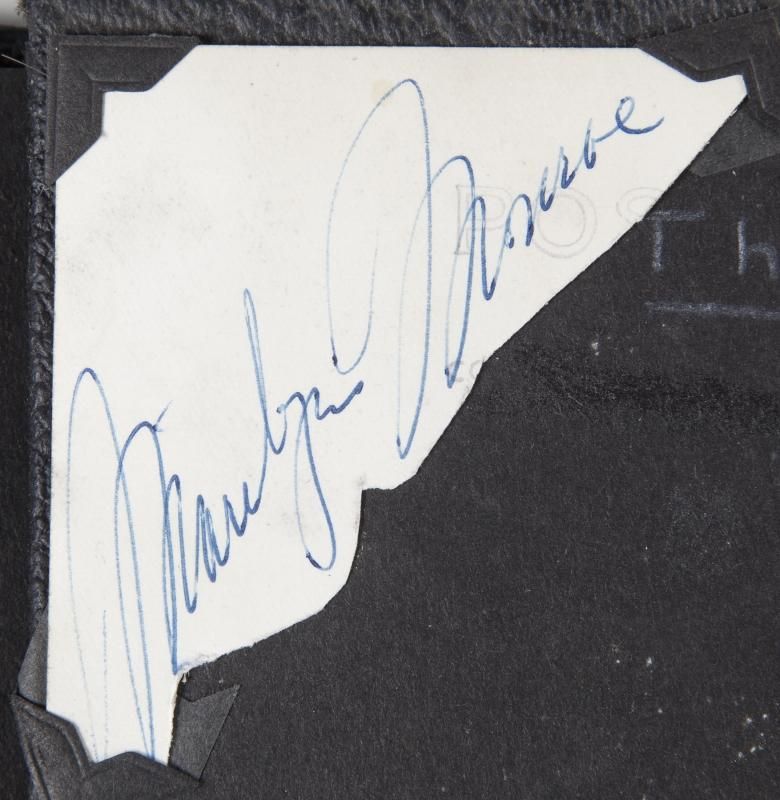 Marilyn Monroe
POS
Th